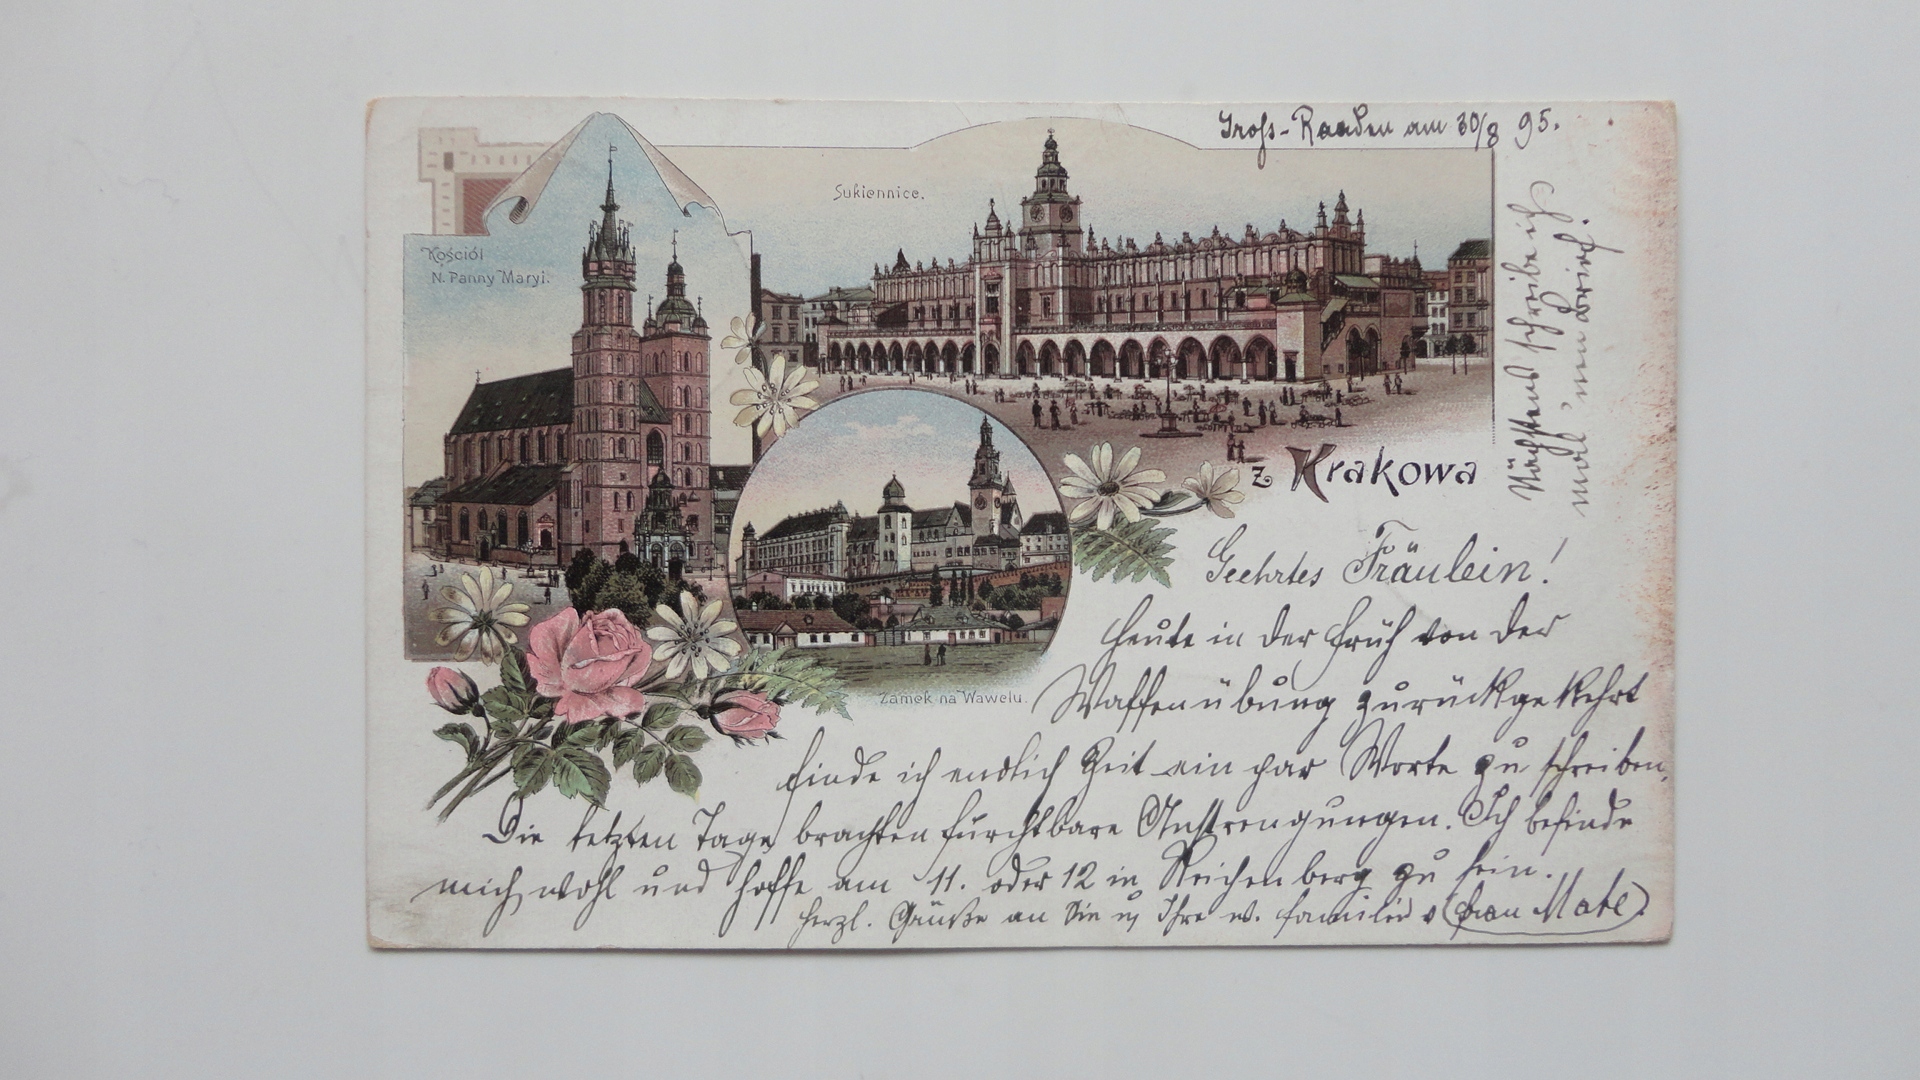 Gross-Raaden am 30/8 95.
Sukiennice.
Kościół
N. Panny Maryi.
Nächstens schreibe ich
mal 'nen Brief.
z Krakowa
Geehrtes Fräulein!
Heute in der Früh von der
Zamek na Wawelu.
Waffenübung zurückgekehrt
finde ich endlich Zeit ein par Worte zu schreiben.
Die letzten Tage brachten furchtbare Anstrengungen. Ich befinde
mich wohl und hoffe am 11. oder 12 in Reichenberg zu sein.
Herzl. Grüße an Sie u. Ihre w. Familie Frau